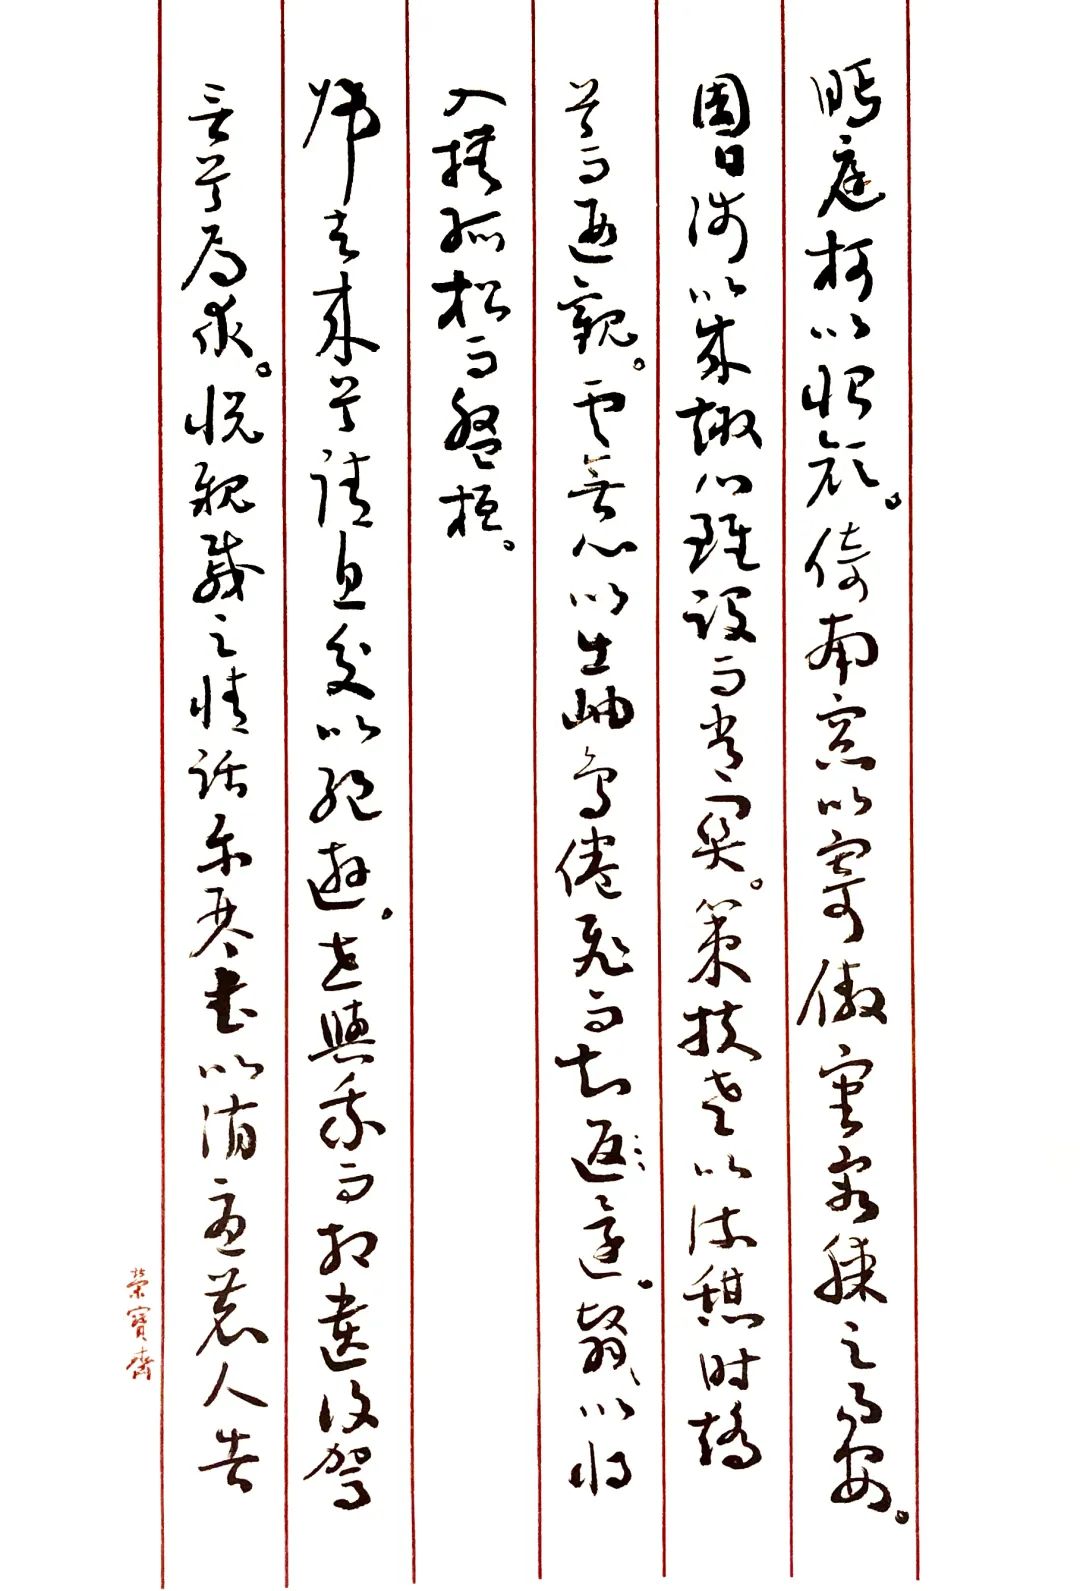 眄庭柯以怡顔。倚南窓以寄傲審容膝之易安。
園日涉以成趣門雖設而常関。策扶老以流憩時矯
首而遐觀。雲無心以出岫鳥倦飛而知返還。翳〻以将
入撫孤松而盤桓。
歸去来兮請息交以絶遊。世與我而相遺復駕
言兮焉求。悦親戚之情話樂琴書以消憂農人告
榮寶齋